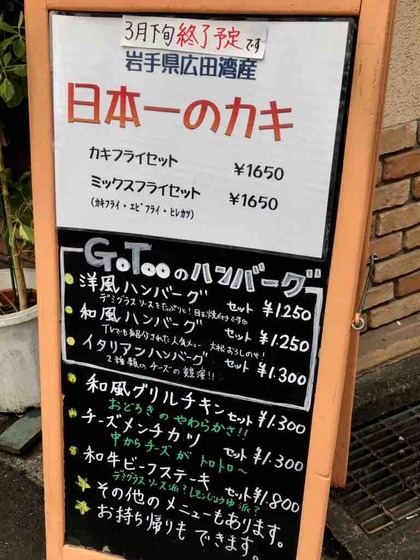 3月下旬終了予定です
岩手県広田湾産
日本一のカキ
カキフライセット ¥1650
ミックスフライセット ¥1650
(カキフライ・エビフライ・ヒレカツ)
GoTooのハンバーグ
洋風ハンバーグ セット ¥1.250
デミグラスソースをたっぷりと!目玉焼付きです
和風ハンバーグ セット ¥1.250
TVでも紹介された人気メニュー 大根おろしのせ!
イタリアンハンバーグ セット ¥1.300
2種類のチーズの競演!!
和風グリルチキン セット ¥1.300
おどろきのやわらかさ!!
チーズメンチカツ セット ¥1.300
中からチーズがトロトロ〜
和牛ビーフステーキ セット ¥1.800
デミグラスソース派?レモンじょうゆ派?
その他のメニューもあります。
お持ち帰りもできます。